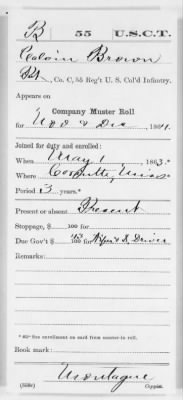 B 55 U.S.C.T.
Calvin Brown
Pvt, Co. C, 55 Reg't U. S. Col'd Infantry.
Appears on
Company Muster Roll
for Nov & Dec, 1864.
Joined for duty and enrolled:
When May 1, 1863.*
Where Corinth, Miss
Period 3 years.*
Present or absent Present
Stoppage, $ 100 for
Due Gov't $ 100 for
Remarks:
* See enrollment on card from muster-in roll.
Book mark:
Montague
(358c) Copyist.